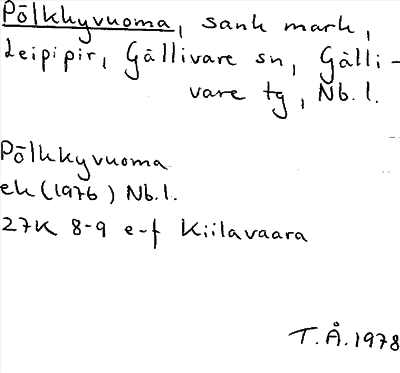 Pölkkyvuoma, sank mark,
Leipipir, Gällivare sn, Gälli-
vare tg, Nb. l.
Pölkkyvuoma
ek (1976) Nb. l.
27K 8-9 e-f Kiilavaara
T. Å. 1978